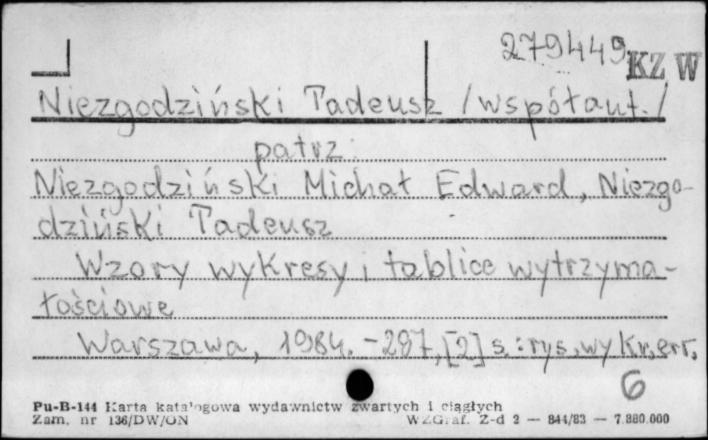 279449
KZ W
Niezgodziński Tadeusz /współaut./
patrz:
Niezgodziński Michał Edward, Niezgo-
dziński Tadeusz
Wzory wykresy i tablice wytrzyma-
łościowe
Warszawa, 1984. - 287, [2] s. : rys., wykr., err.
6
Pu-B-144 Karta katalogowa wydawnictw zwartych i ciągłych
Zam. nr 136/DW/ON WZGraf. Z-d 2 — 844/83 — 7.880.000